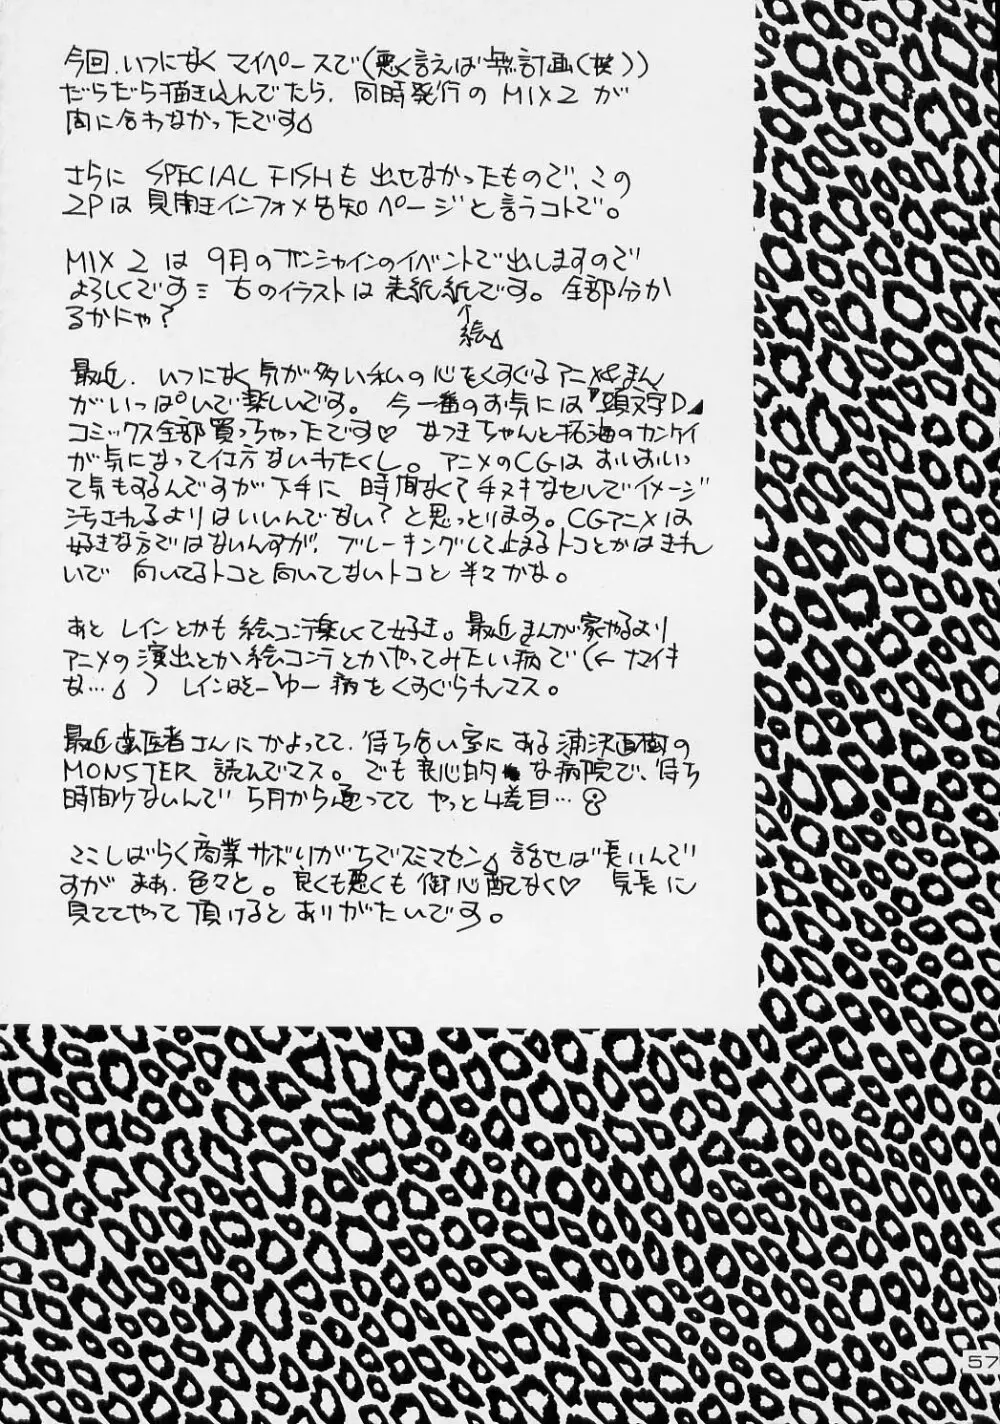 今回、いつになく マイペースで(悪く言えば無計画(笑))
だらだら描き込んでたら、同時発行の MIX 2 が
間に合わなかったです
さらに SPECIAL FISHも 出せなかったもので、この
2Pは インフォメ告知ページと言うコトで。
MIX 2 は 9月の サンシャインのイベントで出しますので
よろしくです 右のイラストは 表紙紙です。 全部分か
るかにゃ?
↑
絵
最近、いつになく 気が多い私の心をくすぐる アニメ&まん
がいっぱいで楽しいです。 今一番のお気には『頭文字D』
コミックス全部買っちゃったです♡ なつきちゃんと拓海のカンケイ
が気になって仕方ないわたくし。 アニメのCGは おいおいっ
て気もするんですが 下手に 時間なくて手ヌキなセルでイメージ
汚されるよりはいいんでない?と思っとります。CGアニメは
好きな方ではないんすが、ブレーキングして止まるトコとかはきれ
いで 向いてるトコと向いてないトコと 半々かな。
あと レインとかも 絵コンテ楽しくて好き。最近まんが家やるより
アニメの演出とか絵コンテとかやってみたい病で(←ナマイキ
な… ) レインはそーゆー病をくすぐられマス。
最近歯医者さんにかよってて、待ち合い室にある浦沢直樹の
MONSTER 読んでマス。でも良心的な病院で、待ち
時間少ないんで 5月から通ってて やっと4巻目…
ここしばらく商業サボりがちでスミマセン 話せば長いんで
すが まあ、色々と。 良くも悪くも 御心配なく♡ 気長に
見ててやって頂けるとありがたいです。
57